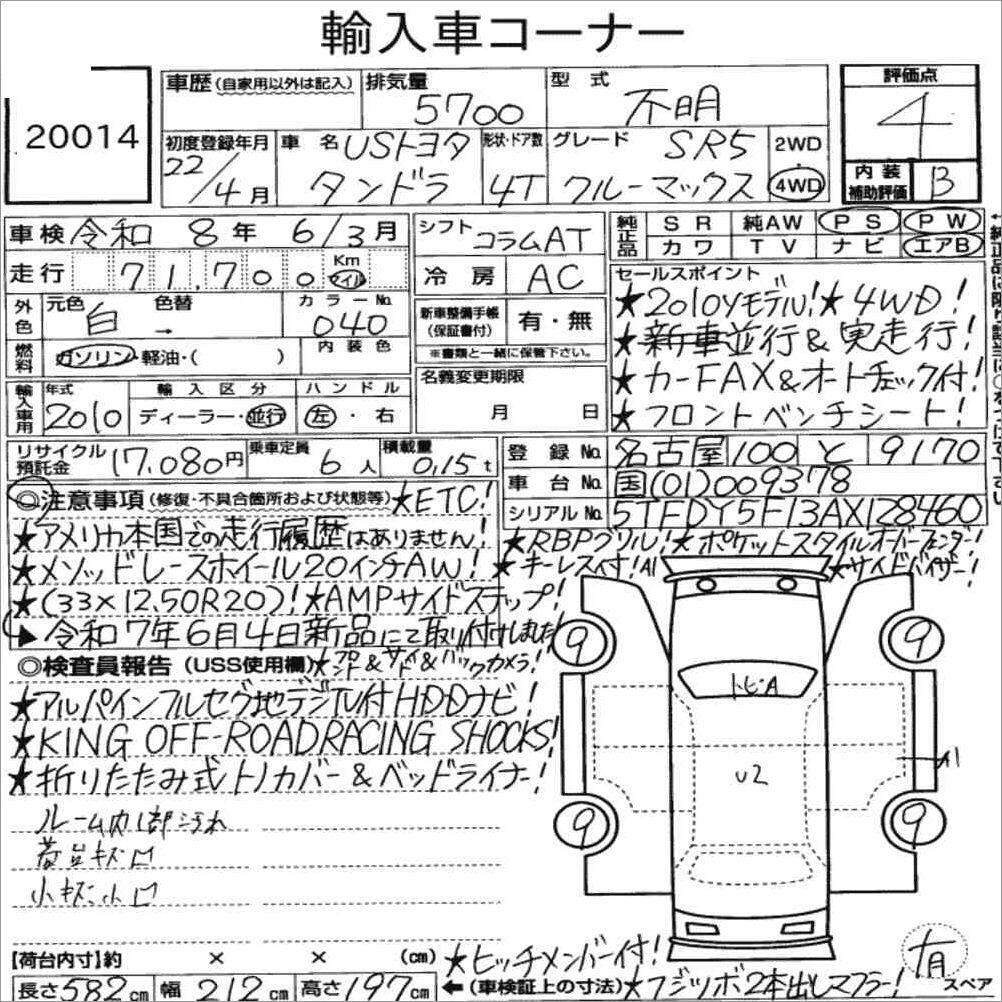 輸入車コーナー
20014
車歴 (自家用以外は記入) 排気量 5700 型式 不明 評価点 4
初度登録年月 22/4月 車名 USトヨタ タンドラ 形状・ドア数 4T グレード SR5 クルーマックス 2WD・4WD 内装補助評価 B
車検 令和 8年 6/3月 シフト コラムAT 純正品 SR 純AW PS PW
カワ TV ナビ エアB
走行 71,700 Km マイル 冷房 AC
外色 元色 白 色替 → カラーNo. 040 内装色
新車整備手帳 (保証書付) 有・無
※書類と一緒に保管下さい。
燃料 ガソリン・軽油・( )
輸入車用 年式 2010 輸入区分 ディーラー・並行 ハンドル 左・右
名義変更期限 月 日
セールスポイント
★2010Yモデル!★4WD!
★新車並行&実走行!
★カーFAX&オートチェック付!
★フロントベンチシート!
リサイクル預託金 17,080円 乗車定員 6人 積載量 0.15t
登録No. 名古屋100 と 9170
車台No. 国(01)009378
シリアルNo. 5TFDY5F13AX128460
◎注意事項 (修復・不具合箇所および状態等) ★ETC!
★アメリカ本国での走行履歴はありません!
★RBPグリル!★ポケットスタイルオーバーフェンダー!
★メソッドレースホイール20インチAW!★キーレス付!
★サイドバイザー!
★(33×12.50R20)!★AMPサイドステップ!
▶令和7年6月4日新品にて取り付けしました!
◎検査員報告 (USS使用欄) ★フロント&サイド&バックカメラ!
★アルパインフルセグ地デジTV付HDDナビ!
★KING OFF-ROAD RACING SHOCKS!
★折りたたみ式トノカバー&ベッドライナー!
ルーム内1部汚れ
荷台キズ凹
小キズ小凹
A1
9
9
トビA
U2
A1
9
9
【荷台内寸】約 × × (cm)
★ヒッチメンバー付!
長さ582cm 幅212cm 高さ197cm ←(車検証上の寸法) ★フジツボ2本出しマフラー!
有 スペア